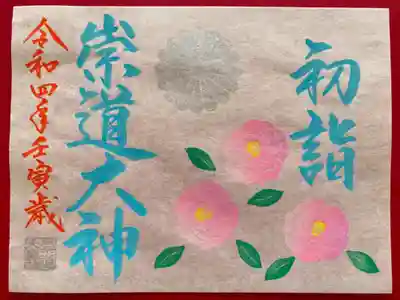 初詣
崇道大神
令和四年壬寅歳